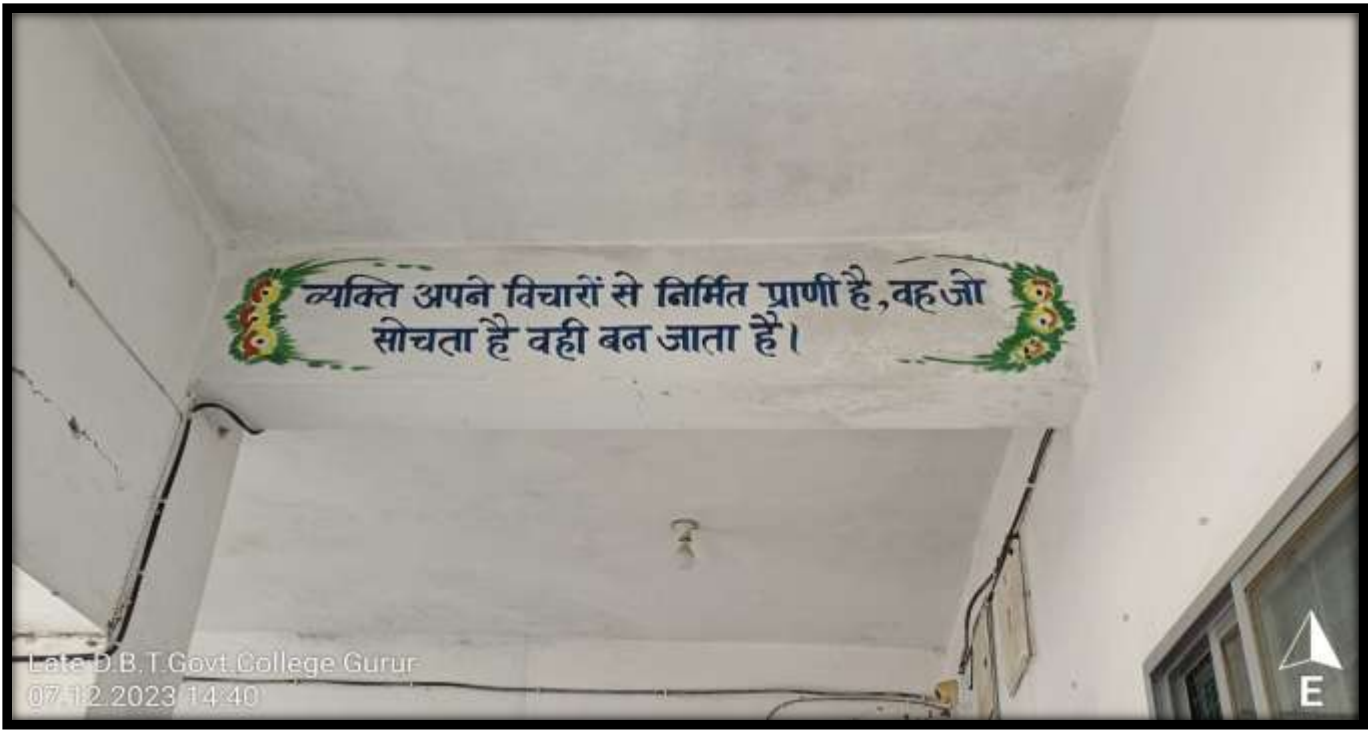 व्यक्ति अपने विचारों से निर्मित प्राणी है, वह जो
सोचता है वही बन जाता है।
Late D.B.T.Govt College Gurur
07.12.2023 14:40
E